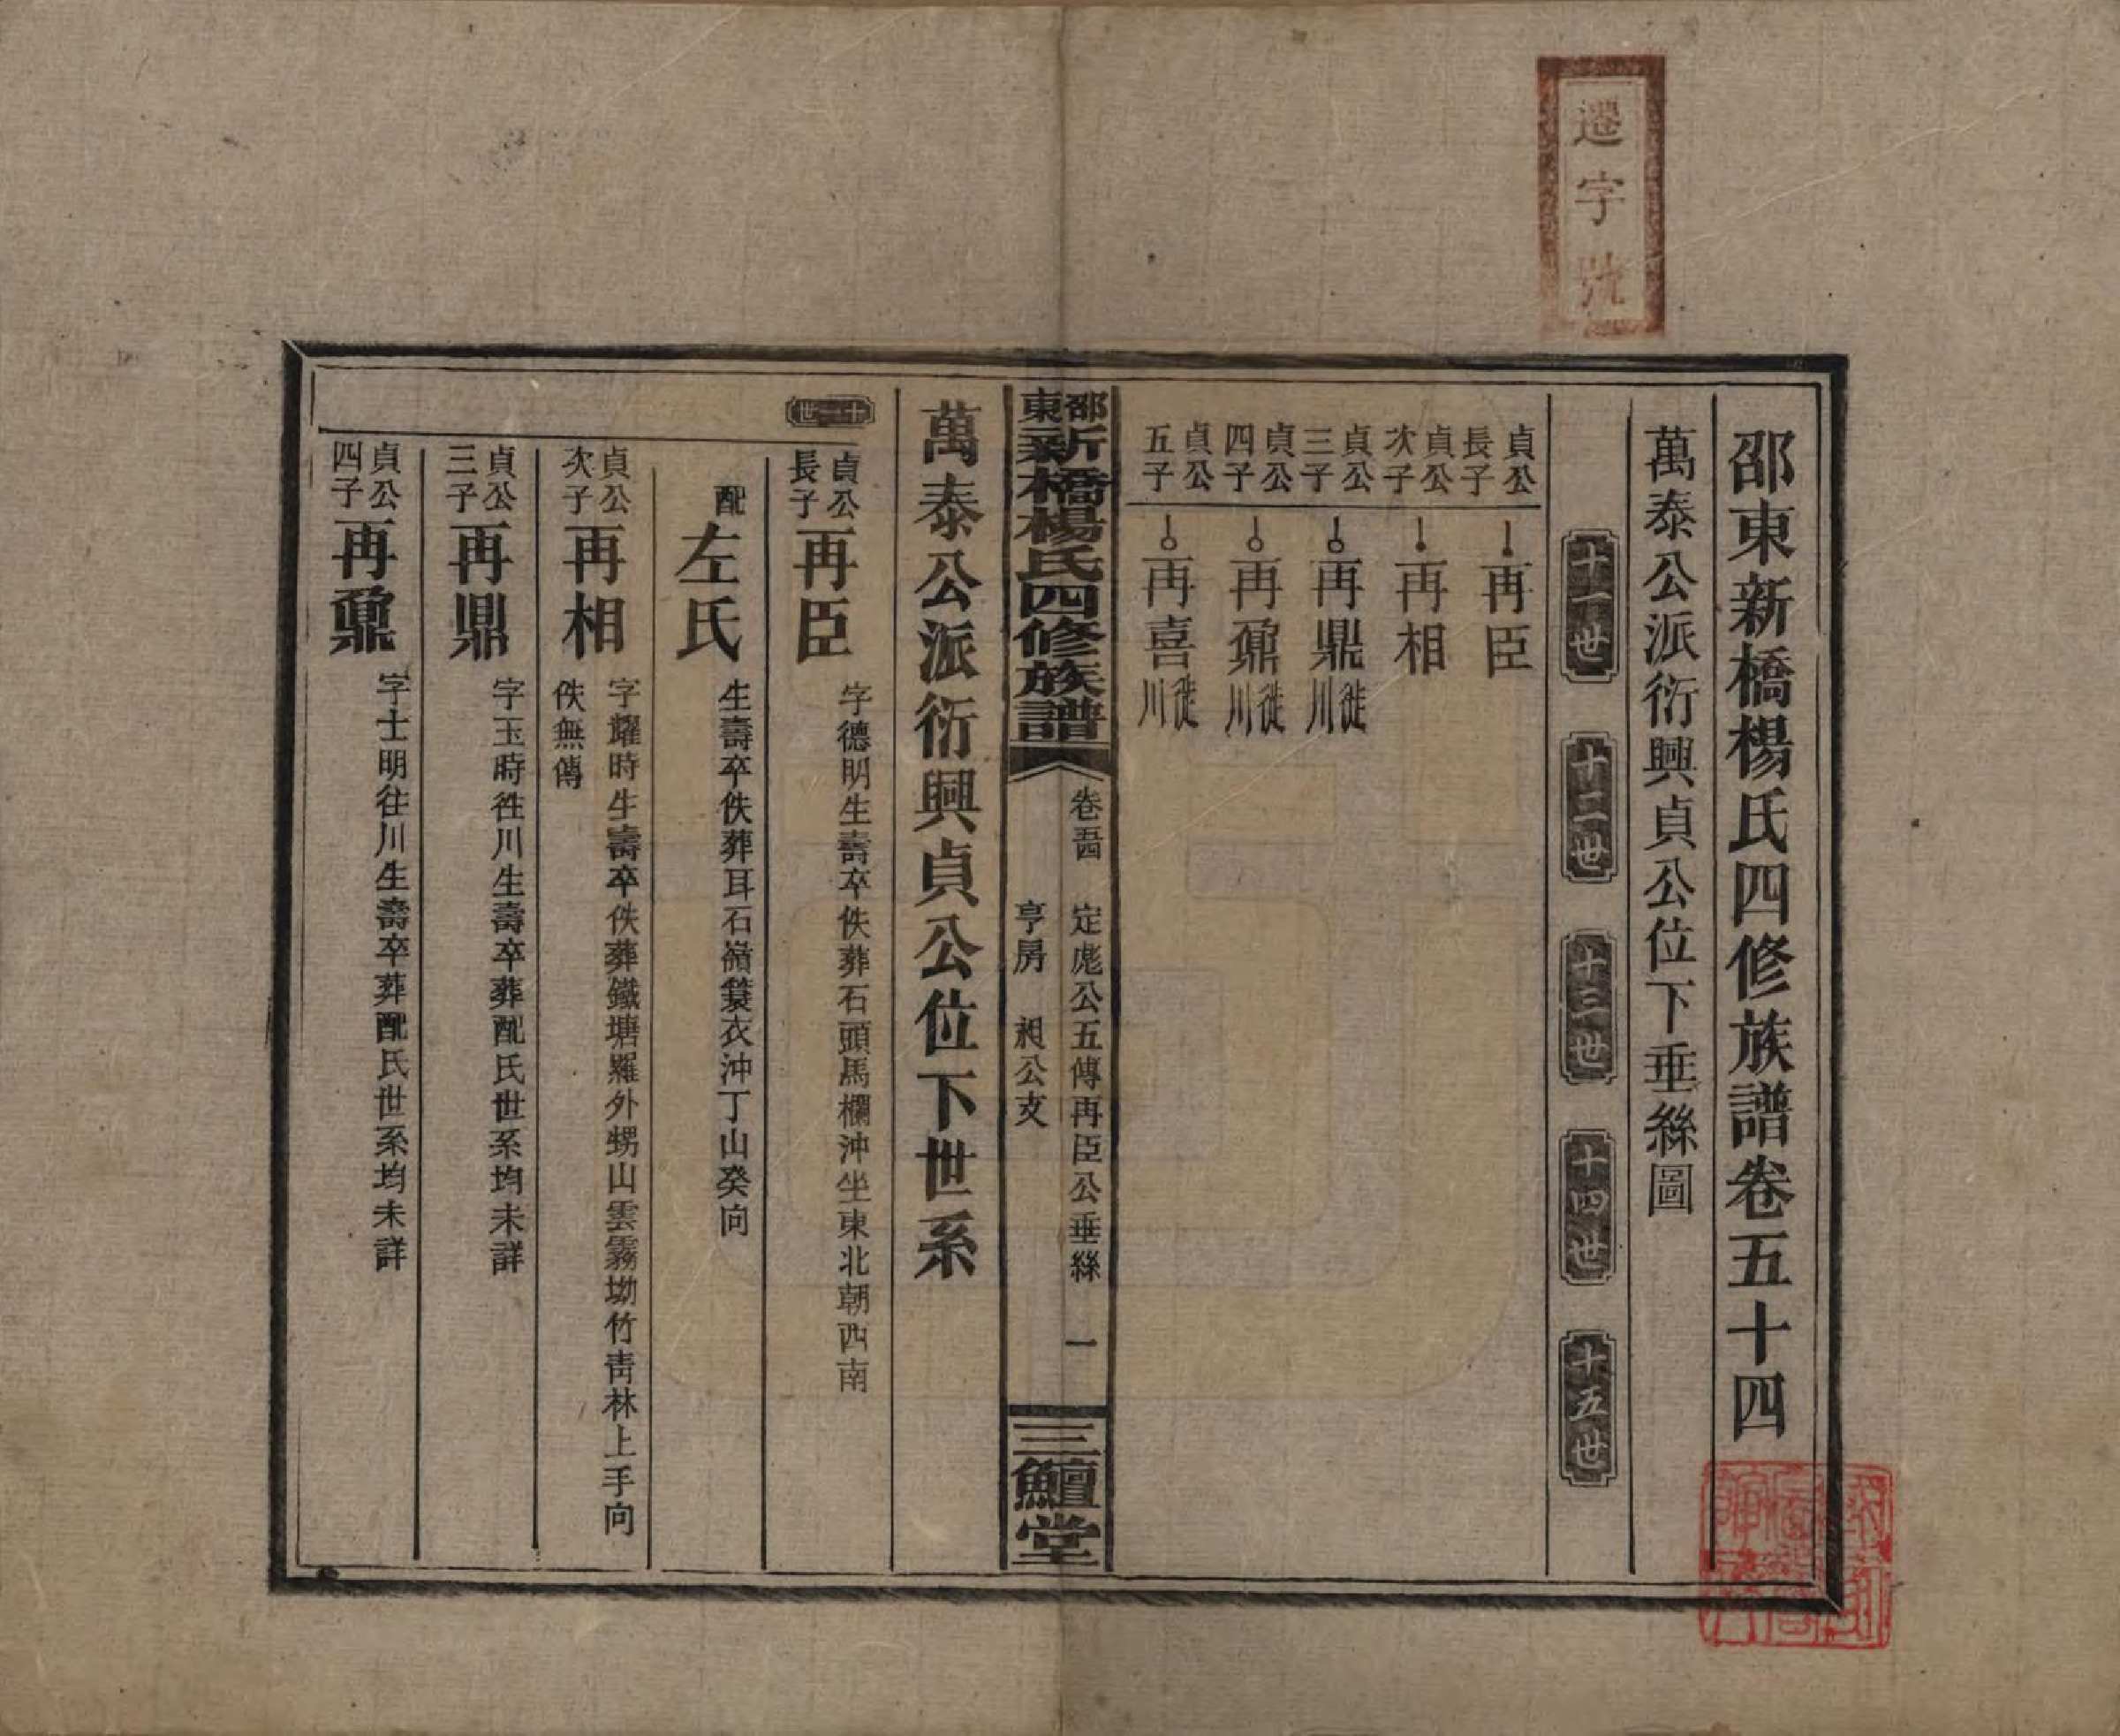 邵東新橋楊氏四修族譜卷五十四
萬泰公派衍興貞公位下垂絲圖
十一世 十二世 十三世 十四世 十五世
貞公長子 再臣
貞公次子 再相
貞公三子 再鼎 徙川
貞公四子 再鼐 徙川
貞公五子 再喜 徙川
邵東新橋楊氏四修族譜 卷五四 定彪公五傳再臣公垂絲 一
亨房 昶公支
三鱣堂
萬泰公派衍興貞公位下世系
十一世
貞公長子 再臣 字德明生壽卒佚葬石頭馬欄沖坐東北朝西南
配 左氏 生壽卒佚葬耳石嶺簑衣沖丁山癸向
貞公次子 再相 字耀時生壽卒佚葬鐵塘羅外甥山雲霧坳竹青林上手向
佚無傳
貞公三子 再鼎 字玉時徃川生壽卒葬配氏世系均未詳
貞公四子 再鼐 字士明往川生壽卒葬配氏世系均未詳
遷字號